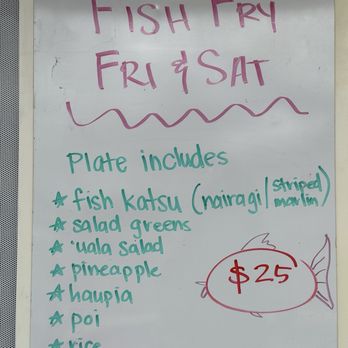 FISH FRY
FRI & SAT
Plate includes
☆ fish katsu (nairagi/striped marlin)
☆ salad greens
☆ 'uala salad
☆ pineapple
☆ haupia
☆ poi
☆ rice
$25